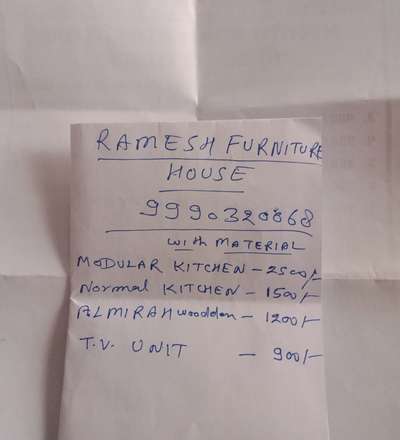 RAMESH FURNITURE
HOUSE
9990320868
with MATERIAL
MODULAR KITCHEN - 2500/-
Normal KITCHEN - 1500/-
ALMIRAH woodden - 1200/-
T.V. UNIT - 900/-